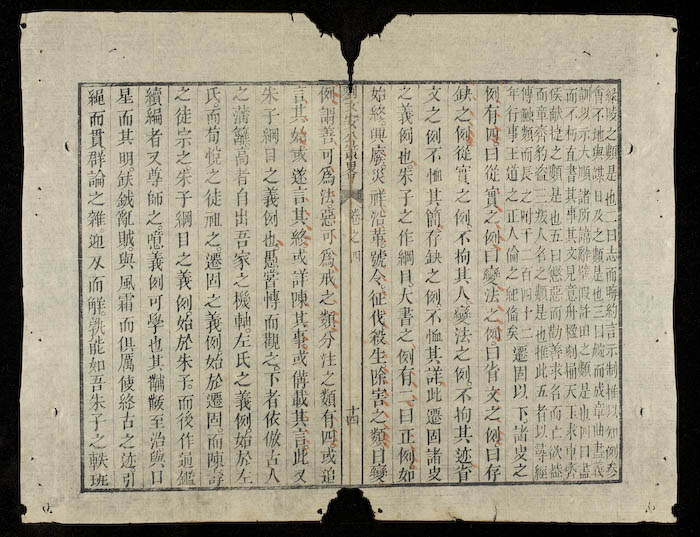 緣陵之類是也二曰志而晦約言示制推以知例參
會不地與謀曰及之類是也三曰婉而成章曲盡義
訓以示大順諸所諱辟璧假許田之類是也四曰盡
而不汙直書其事具文見意丹楹刻桷天王求車齊
侯獻捷之類是也五曰懲惡而勸善求名而亡欲蓋
而章齊豹盜三叛人名之類是也推此五者以尋經
傳觸類而長之附于二百四十二
年行事王道之正人倫之紀備矣
遷固以下諸史之
例有四曰從實之例曰變法之例曰省文之例曰存
缺之例從實之例不拘其人變法之例不拘其迹省
文之例不恤其簡存缺之例不恤其詳此遷固諸史
之義例也朱子之作綱目大書之例有二曰正例如
始終興廢災祥沿革號令征伐殺生除害之類曰變
卷之四
十四
例謂善可為法惡可為戒之類分注之類有四或追
言其始或遂言其終或詳陳其事或備載其言此又
朱子綱目之義例也愚嘗博而觀之下者依倣古人
之藩籬高者自出吾家之機軸左氏之義例始於左
氏而荀悅之徒祖之遷固之義例始於遷固而陳壽
之徒宗之朱子綱目之義例始於朱子而後作通鑑
續編者又尊師之噫義例可學也其黼黻至治與日
星而其明鈇鉞亂賊與風霜而俱厲使終古之迹引
繩而貫群論之雜迎刃而解孰能如吾朱子之軼班